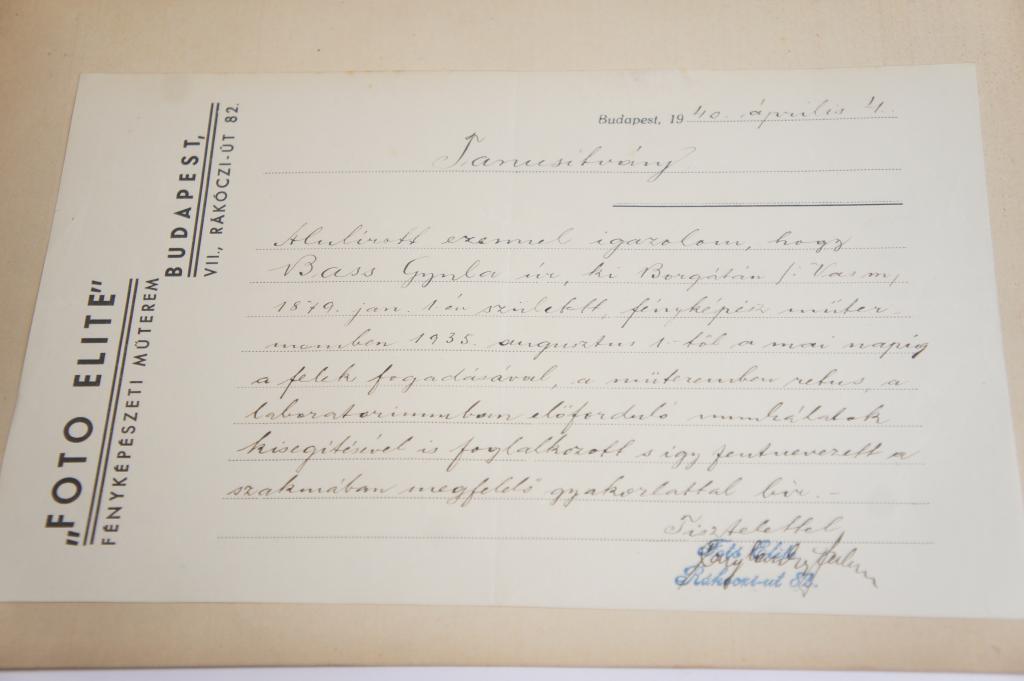 „FOTO ELITE”
FÉNYKÉPÉSZETI MŰTEREM
BUDAPEST,
VII., RÁKÓCZI-ÚT 82.
Budapest, 1940. április 4.
Tanusitvány
Alulírott ezennel igazolom, hogy
Bass Gyula úr, ki Borgátán /: Vasm/
1879. jan. 1-én született, fényképész műter-
memben 1935. augusztus 1-től a mai napig
a felek fogadásával, a műteremben retus, a
laboratoriumban előforduló munkálatok
kisegítésével is foglalkozott s igy fentnevezett a
szakmában megfelelő gyakorlattal bir. –
Tisztelettel
Foto Elite
Rákóczi-ut 82.